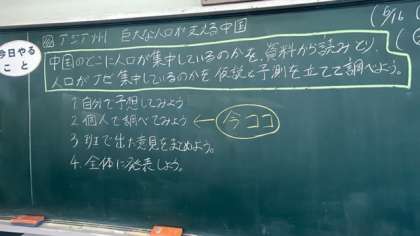 今日やること
アジア州 巨大な人口が支える中国
6/16
中国のどこに人口が集中しているのかを、資料から読みとり、
人口がなぜ集中しているのかを仮説と予測を立てて調べよう。
1 自分で予想してみよう
2 個人で調べてみよう ← 今ココ
3 班で出た意見をまとめよう。
4. 全体に発表しよう。